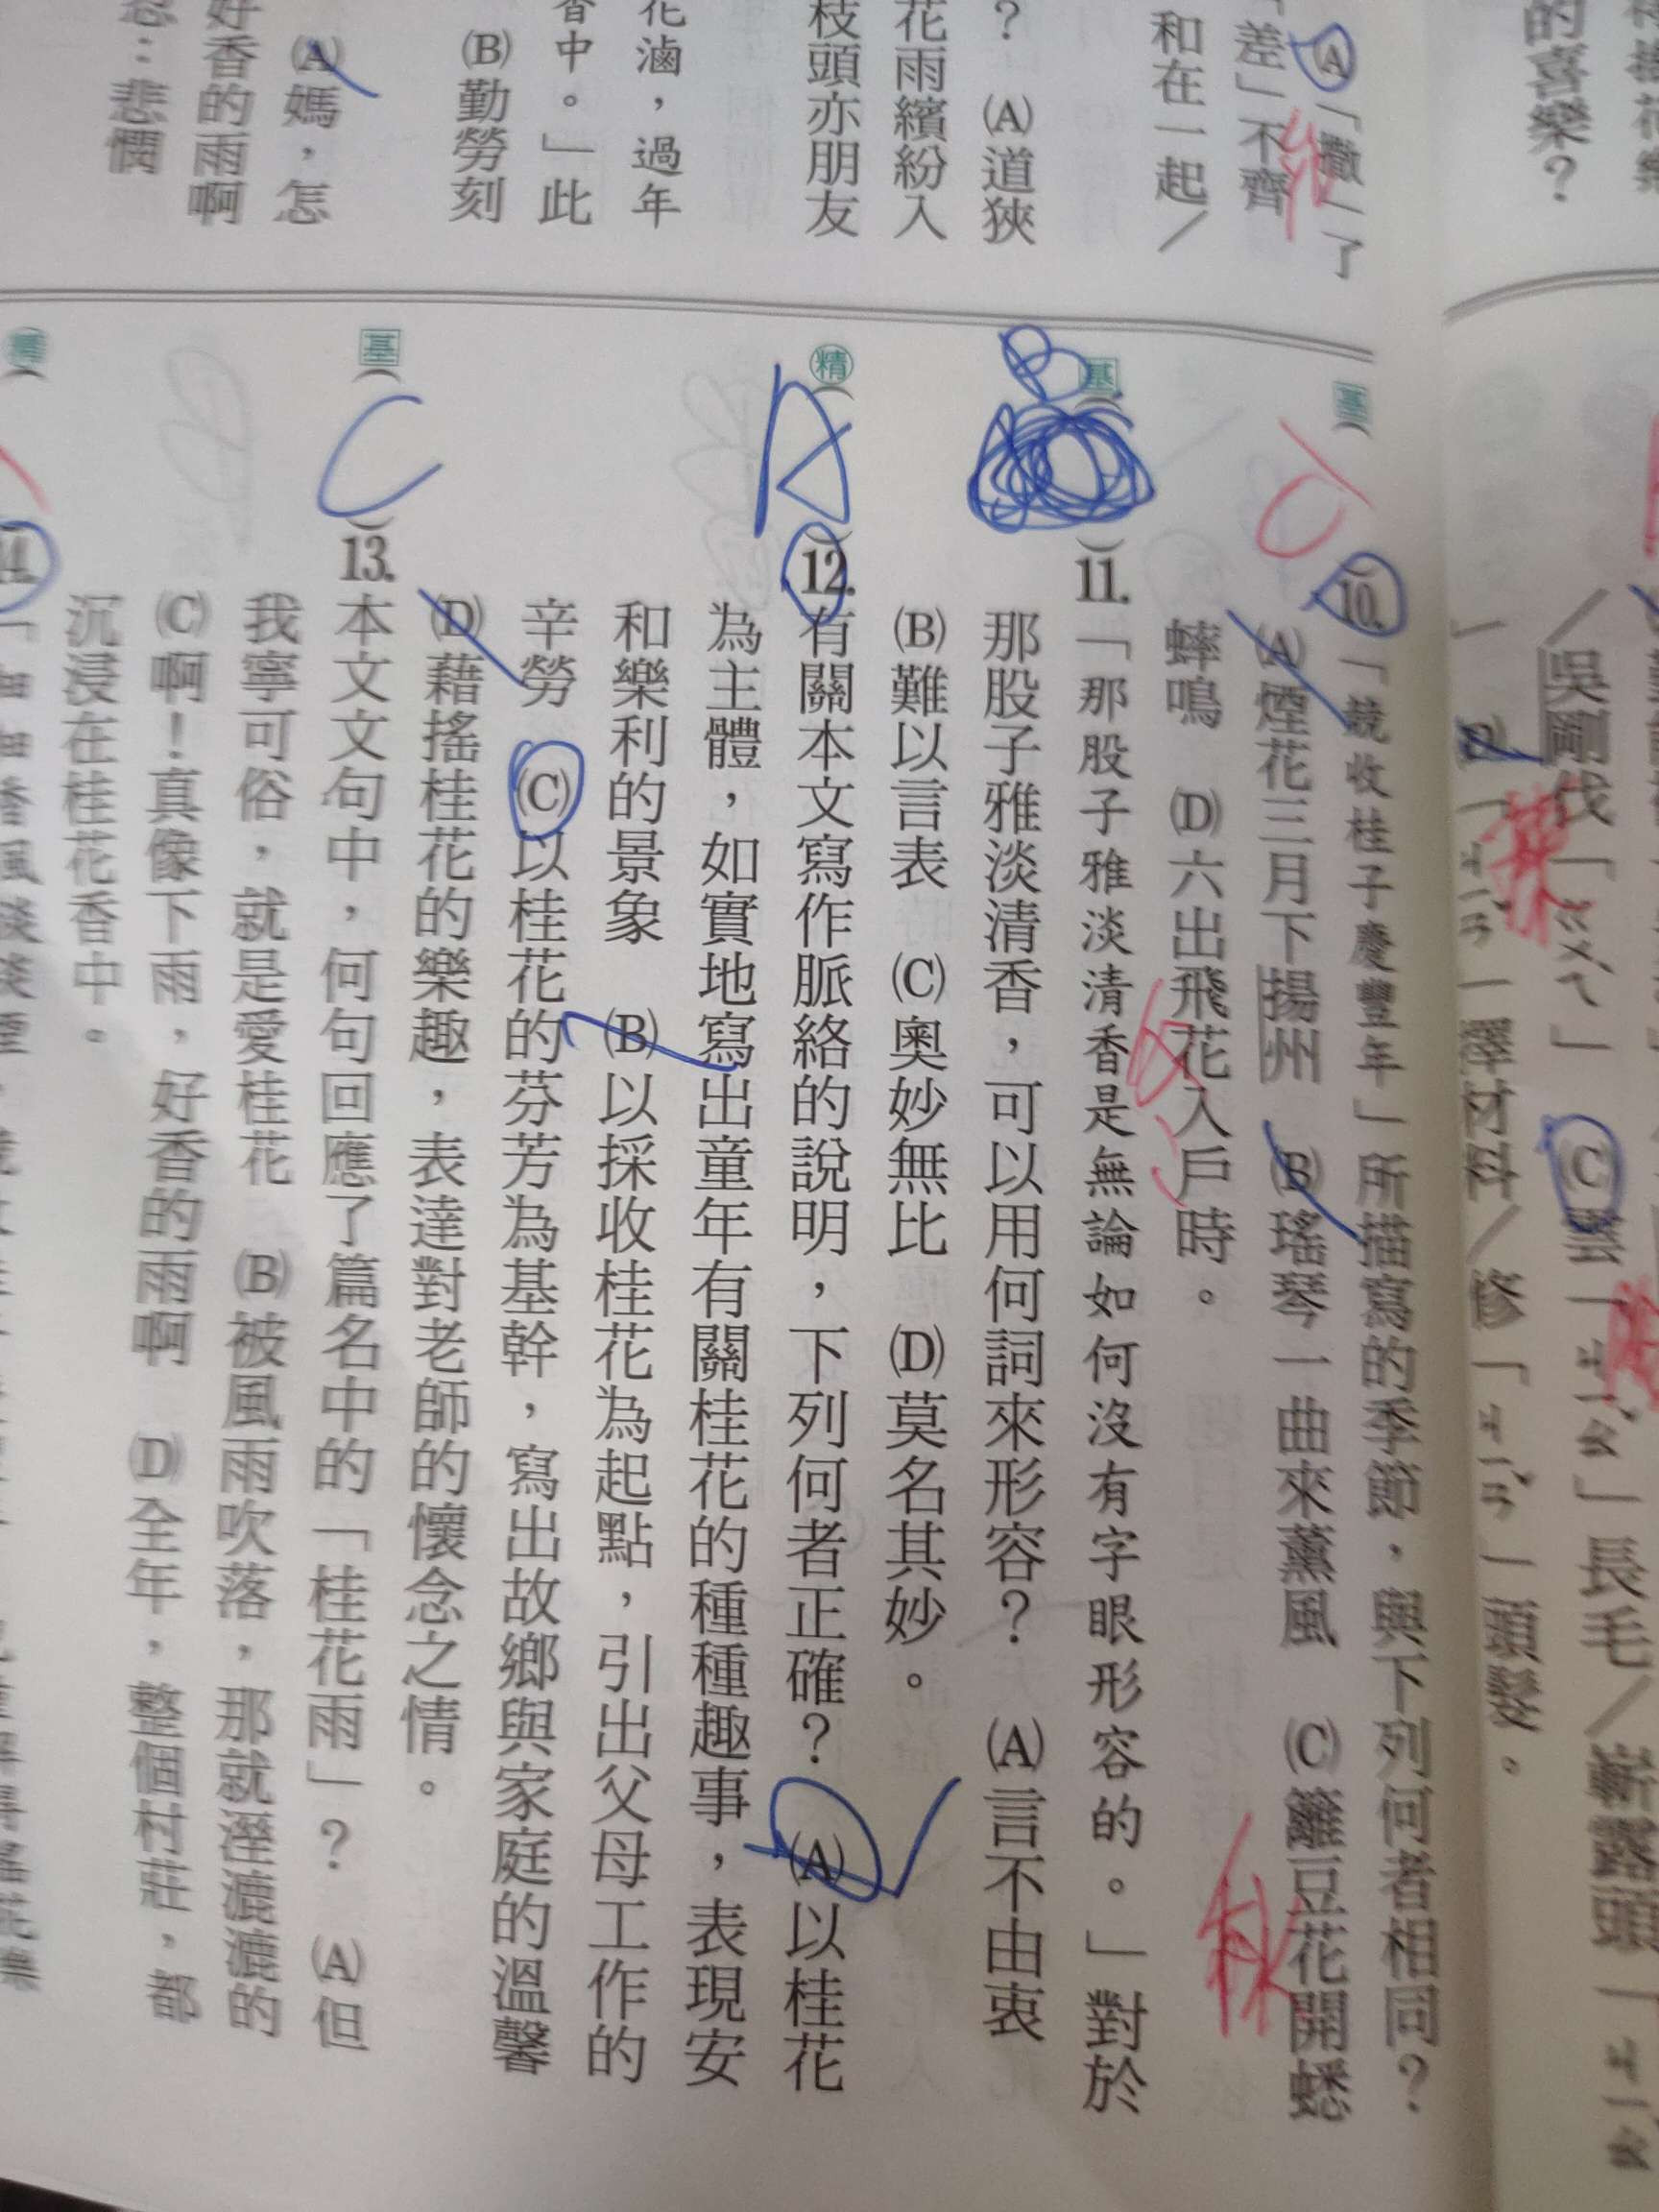 的喜樂？
(A)「撒」了
「差」不齊
和在一起／
？ (A)道狹
花雨繽紛入
枝頭亦朋友
花滷，過年
香中。」此
(B)勤勞刻
(A)媽，怎
好香的雨啊
悲憫
(C)雲「ㄐㄧㄠ」長毛／嶄露頭「ㄐㄧㄠ
／吳剛伐「ㄍㄨㄟ」
(D)「ㄐㄧㄢˇ」擇材料／修「ㄐㄧㄢˇ」頭髮。
10.「競收桂子慶豐年」所描寫的季節，與下列何者相同？
(A)煙花三月下揚州 (B)瑤琴一曲來薰風 (C)籬豆花開蟋
蟀鳴 (D)六出飛花入戶時。
秋
基
B
11.「那股子雅淡清香是無論如何沒有字眼形容的。」對於
那股子雅淡清香，可以用何詞來形容？ (A)言不由衷
(B)難以言表 (C)奧妙無比 (D)莫名其妙。
精
A
12.有關本文寫作脈絡的說明，下列何者正確？ (A)以桂花
為主體，如實地寫出童年有關桂花的種種趣事，表現安
和樂利的景象 (B)以採收桂花為起點，引出父母工作的
辛勞 (C)以桂花的芬芳為基幹，寫出故鄉與家庭的溫馨
(D)藉搖桂花的樂趣，表達對老師的懷念之情。
基
C
13.本文文句中，何句回應了篇名中的「桂花雨」？ (A)但
我寧可俗，就是愛桂花 (B)被風雨吹落，那就溼漉漉的
(C)啊！真像下雨，好香的雨啊 (D)全年，整個村莊，都
沉浸在桂花香中。
14.